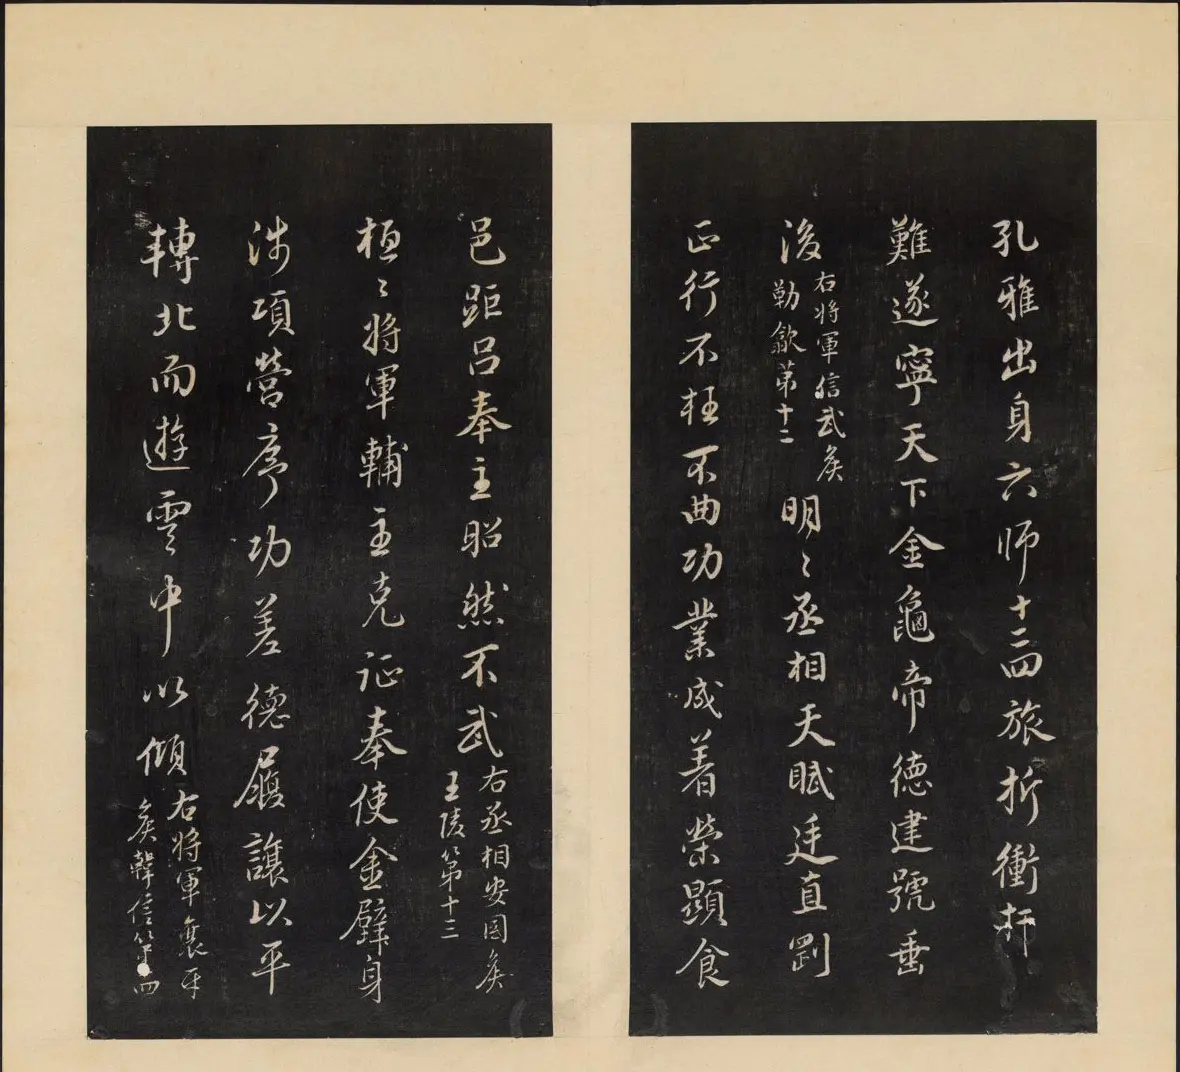 孔雅出身六师十二四旅折衝扞
難遂寧天下金龜帝德建號垂
後
右將軍信武矦
勒歙苐十二
明〻丞相天賦廷直剛
正行不枉不曲功業成着榮顯食
邑距呂奉主昭然不武
右丞相安国矦
王陵第十三
桓〻將軍輔主克征奉使金璧身
涉項營序功差德履讓以平
轉北而遊雲中以傾
右將軍襄平
矦韓信第十四